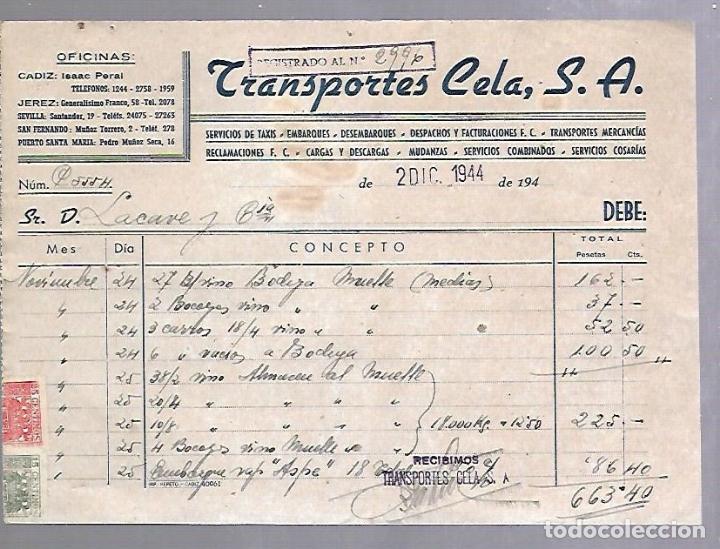 OFICINAS:
CADIZ: Isaac Peral
TELEFONOS: 1244 - 2758 - 1959
JEREZ: Generalísimo Franco, 58 - Tel. 2078
SEVILLA: Santander, 19 - Teléfs. 24075 - 27263
SAN FERNANDO: Muñoz Torrero, 2 - Teléf. 278
PUERTO SANTA MARIA: Pedro Muñoz Seca, 16
REGISTRADO AL N.º 2996
Transportes Cela, S. A.
SERVICIOS DE TAXIS - EMBARQUES - DESEMBARQUES - DESPACHOS Y FACTURACIONES F. C. - TRANSPORTES MERCANCÍAS
RECLAMACIONES F. C. - CARGAS Y DESCARGAS - MUDANZAS - SERVICIOS COMBINADOS - SERVICIOS COSARÍAS
Núm. P5554. de 2 DIC. 1944 de 194
Sr. D. Lacave y Cia DEBE:
Mes Día CONCEPTO TOTAL
Pesetas Cts.
Noviembre 24 27 B/ vino Bodega Muelle (medias) 162 -
" 24 2 Bocoyes vino " " 37 -
" 24 3 carros 18/4 vino " " 52 50
" 24 6 " vacios a Bodega 100 50
" 25 38/2 vino Almacen al Muelle " "
" 25 20/4 " " " "
" 25 10/8 " " " " 18.000 Kg a 12'50 225 -
" 25 4 Bocoyes vino Muelle
" 25 Embarque vap "Aspe" 18 186 40
663'40
RECIBIMOS
TRANSPORTES CELA S. A
IMP. REPETO.-CADIZ 40061
todocoleccion